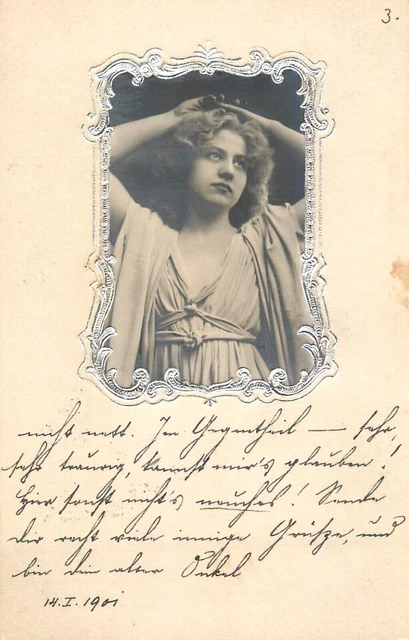 3.
nicht nett. Im Gegentheil — sehr,
sehr traurig, kannst mir's glauben!
Hier sonst nicht's neues! Sende
dir recht viele innige Grüße, und
bin dein alter Onkel
14.I.1901